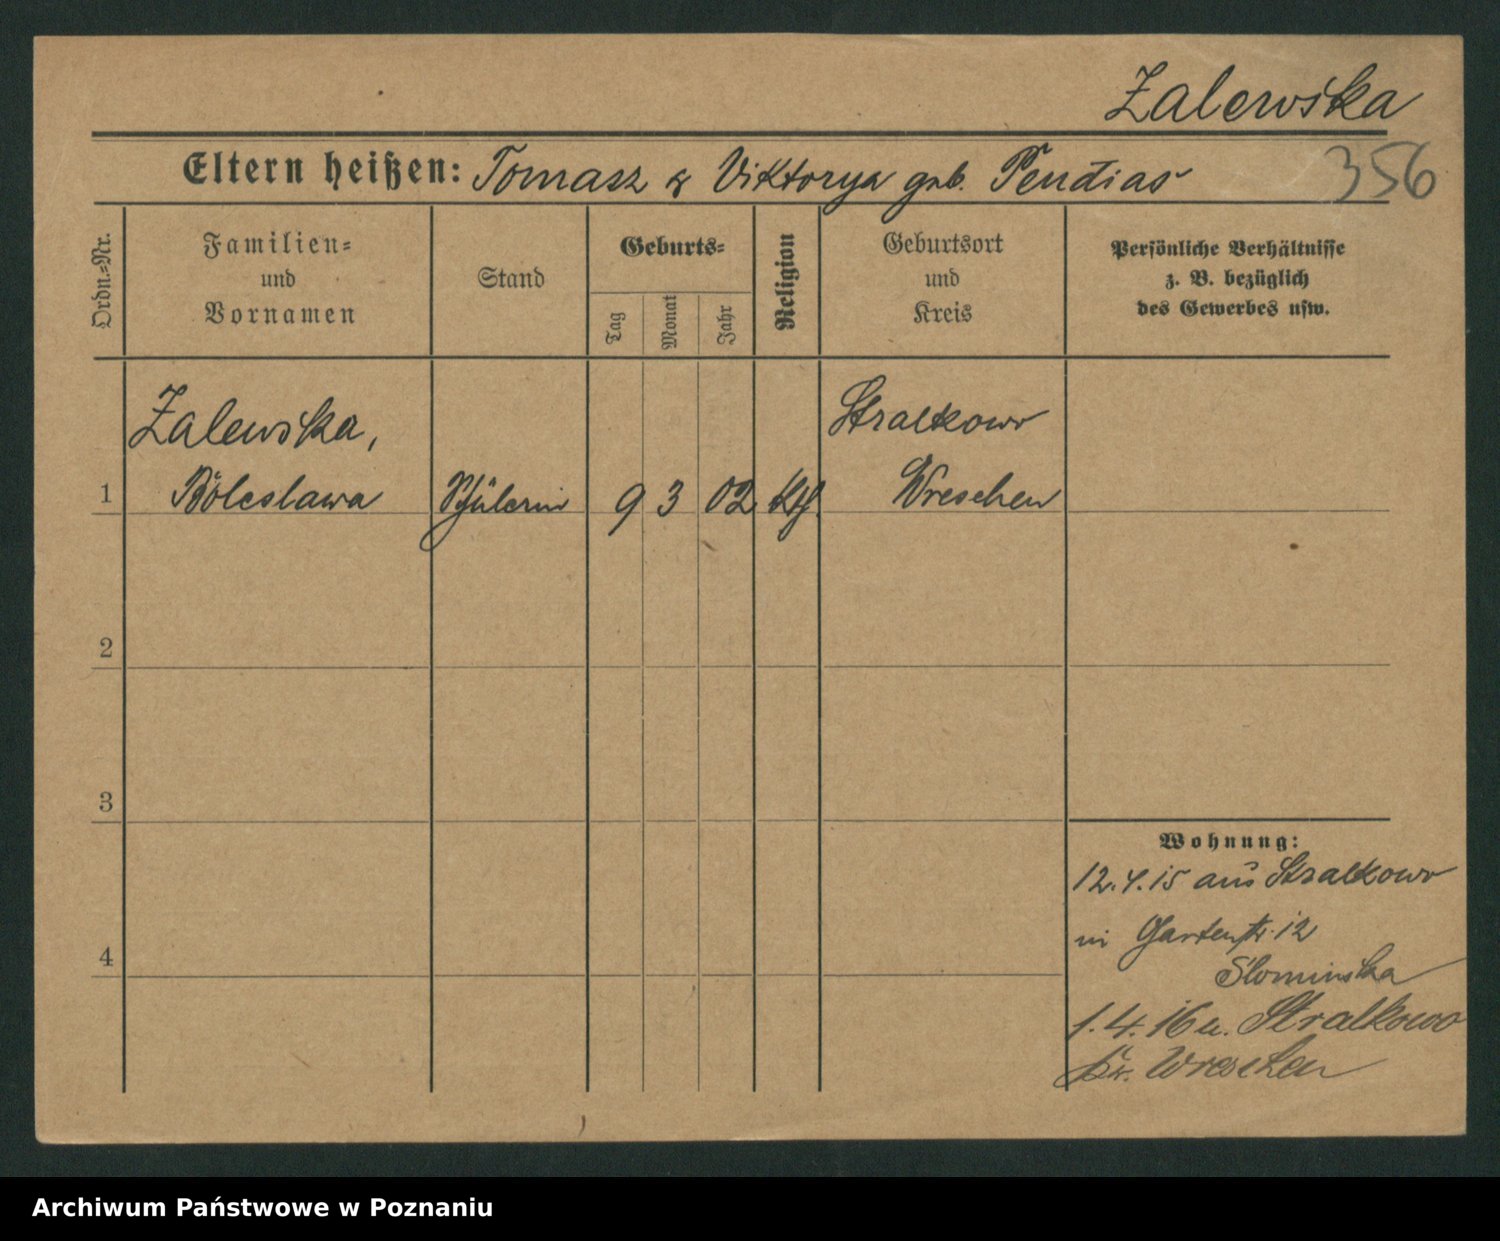 Zalewska
Eltern heißen: Tomasz & Viktorya geb. Pendias
356
Ordn.=Nr.
Familien=
und
Vornamen
Stand
Geburts=
Tag
Monat
Jahr
Religion
Geburtsort
und
Kreis
Persönliche Verhältnisse
z. B. bezüglich
des Gewerbes usw.
Zalewska,
Stralkowo
1 Boleslawa Schülerin 9 3 02 kth. Wreschen
2
3
4
Wohnung:
12.4.15 aus Stralkowo
in Gartenstr. 12
Slominska
1.4.16 n. Stralkowo
Kr. Wreschen
Archiwum Państwowe w Poznaniu